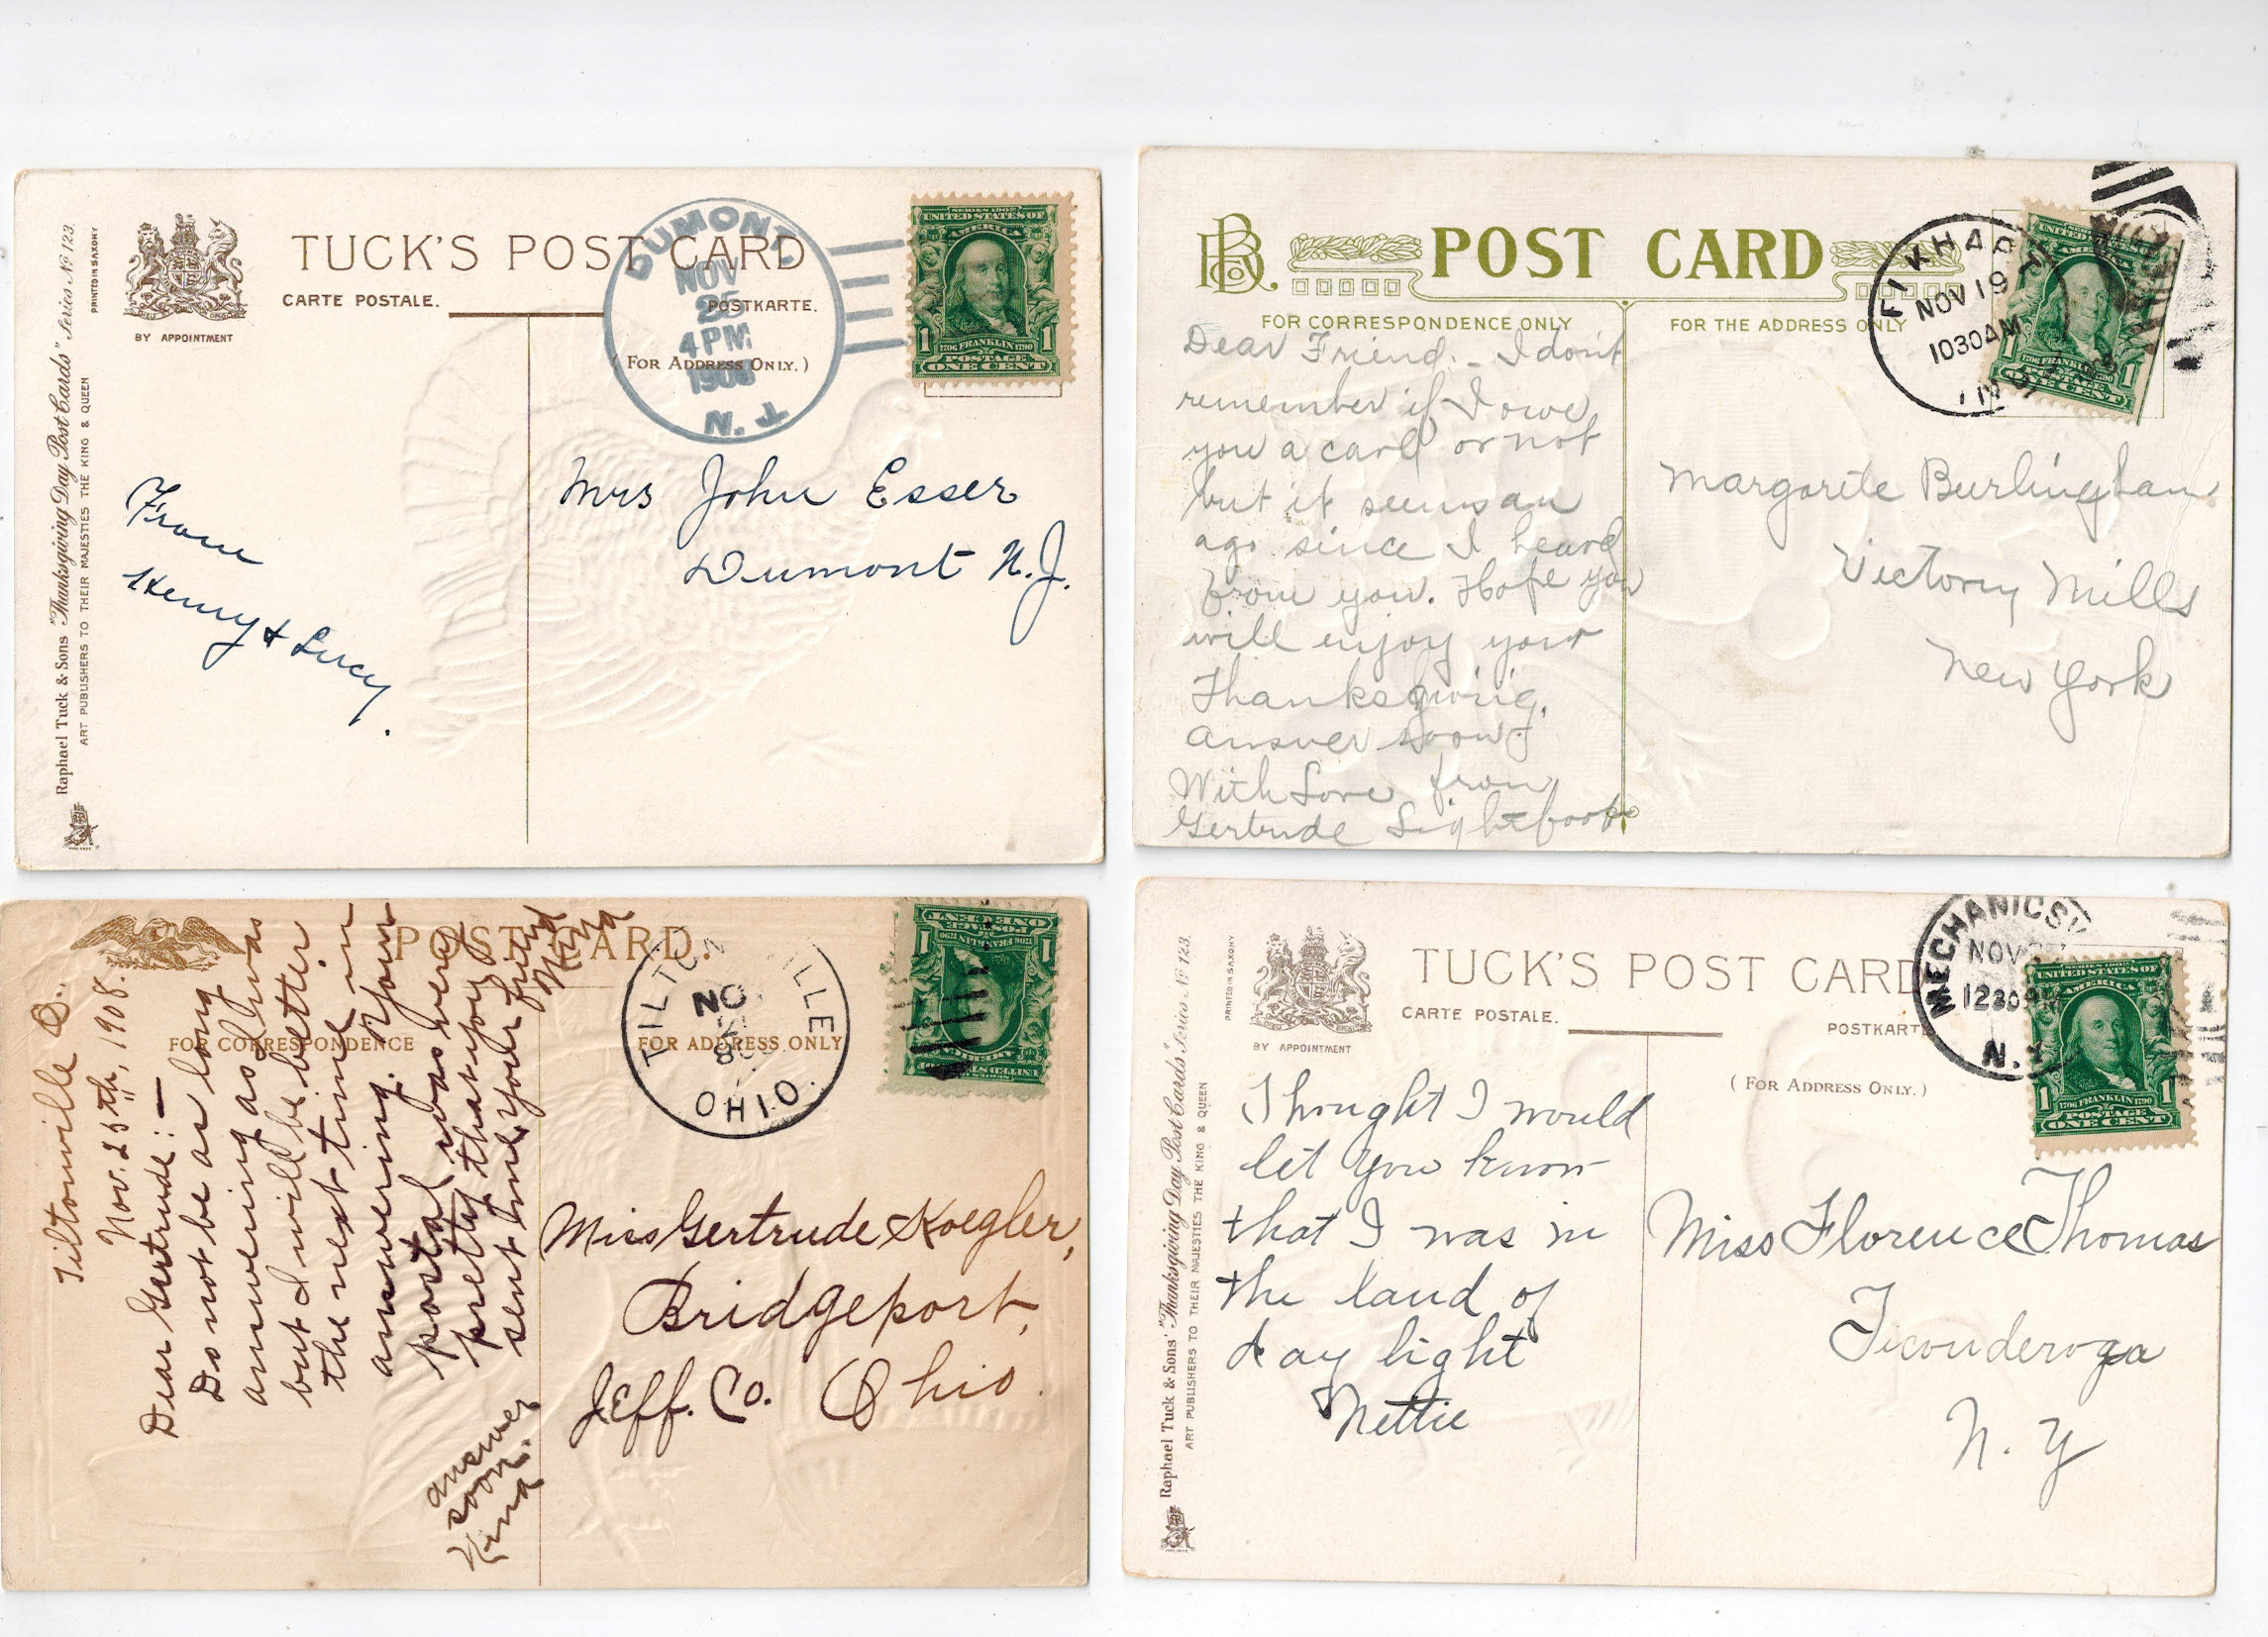 TUCK'S POST CARD
CARTE POSTALE.
POSTKARTE.
(FOR ADDRESS ONLY.)
BY APPOINTMENT
PRINTED IN SAXONY
Raphael Tuck & Sons' "Thanksgiving Day Post Cards" Series Nº 123.
ART PUBLISHERS TO THEIR MAJESTIES THE KING & QUEEN
DUMONT
NOV
25
4 PM
1908
N. J.
SERIES 1902
UNITED STATES OF
AMERICA
1706 FRANKLIN 1790
1 POSTAGE 1
ONE CENT
From
Henry & Lucy.
Mrs John Esser
Dumont N.J.
POST CARD
FOR CORRESPONDENCE ONLY
FOR THE ADDRESS ONLY
NOV 19
1030 AM
IND
UNITED STATES OF
1706 FRANKLIN 1790
1 POSTAGE 1
ONE CENT
Dear Friend:- I don't
remember if I owe
you a card or not
but it seems an
age since I heard
from you. Hope you
will enjoy your
Thanksgiving.
Answer soon
With Love from
Gertrude Lightfoot
Margarete Burlingham
Victory Mills
New York
POST CARD.
FOR CORRESPONDENCE
FOR ADDRESS ONLY
OHIO.
UNITED STATES OF
AMERICA
1706 FRANKLIN 1790
1 POSTAGE 1
ONE CENT
Tiltonville O.,
Nov. 25th, 1908.
Dear Gertrude:—
Do not be as long
answering as I was
but I will be better
the next time in
answering. Your
postal was very
pretty that you
sent me, your friend
Nina
answer
soon.
Nina
Miss Gertrude Koegler,
Bridgeport,
Jeff. Co. Ohio.
TUCK'S POST CARD
CARTE POSTALE.
POSTKARTE
(FOR ADDRESS ONLY.)
BY APPOINTMENT
PRINTED IN SAXONY
Raphael Tuck & Sons' "Thanksgiving Day Post Cards" Series Nº 123.
ART PUBLISHERS TO THEIR MAJESTIES THE KING & QUEEN
MECHANICSV
NOV
1230
N.Y
SERIES 1902
UNITED STATES OF
AMERICA
1706 FRANKLIN 1790
1 POSTAGE 1
ONE CENT
Thought I would
let you know
that I was in
the land of
day light
Nettie
Miss Florence Thomas
Ticonderoga
N. Y